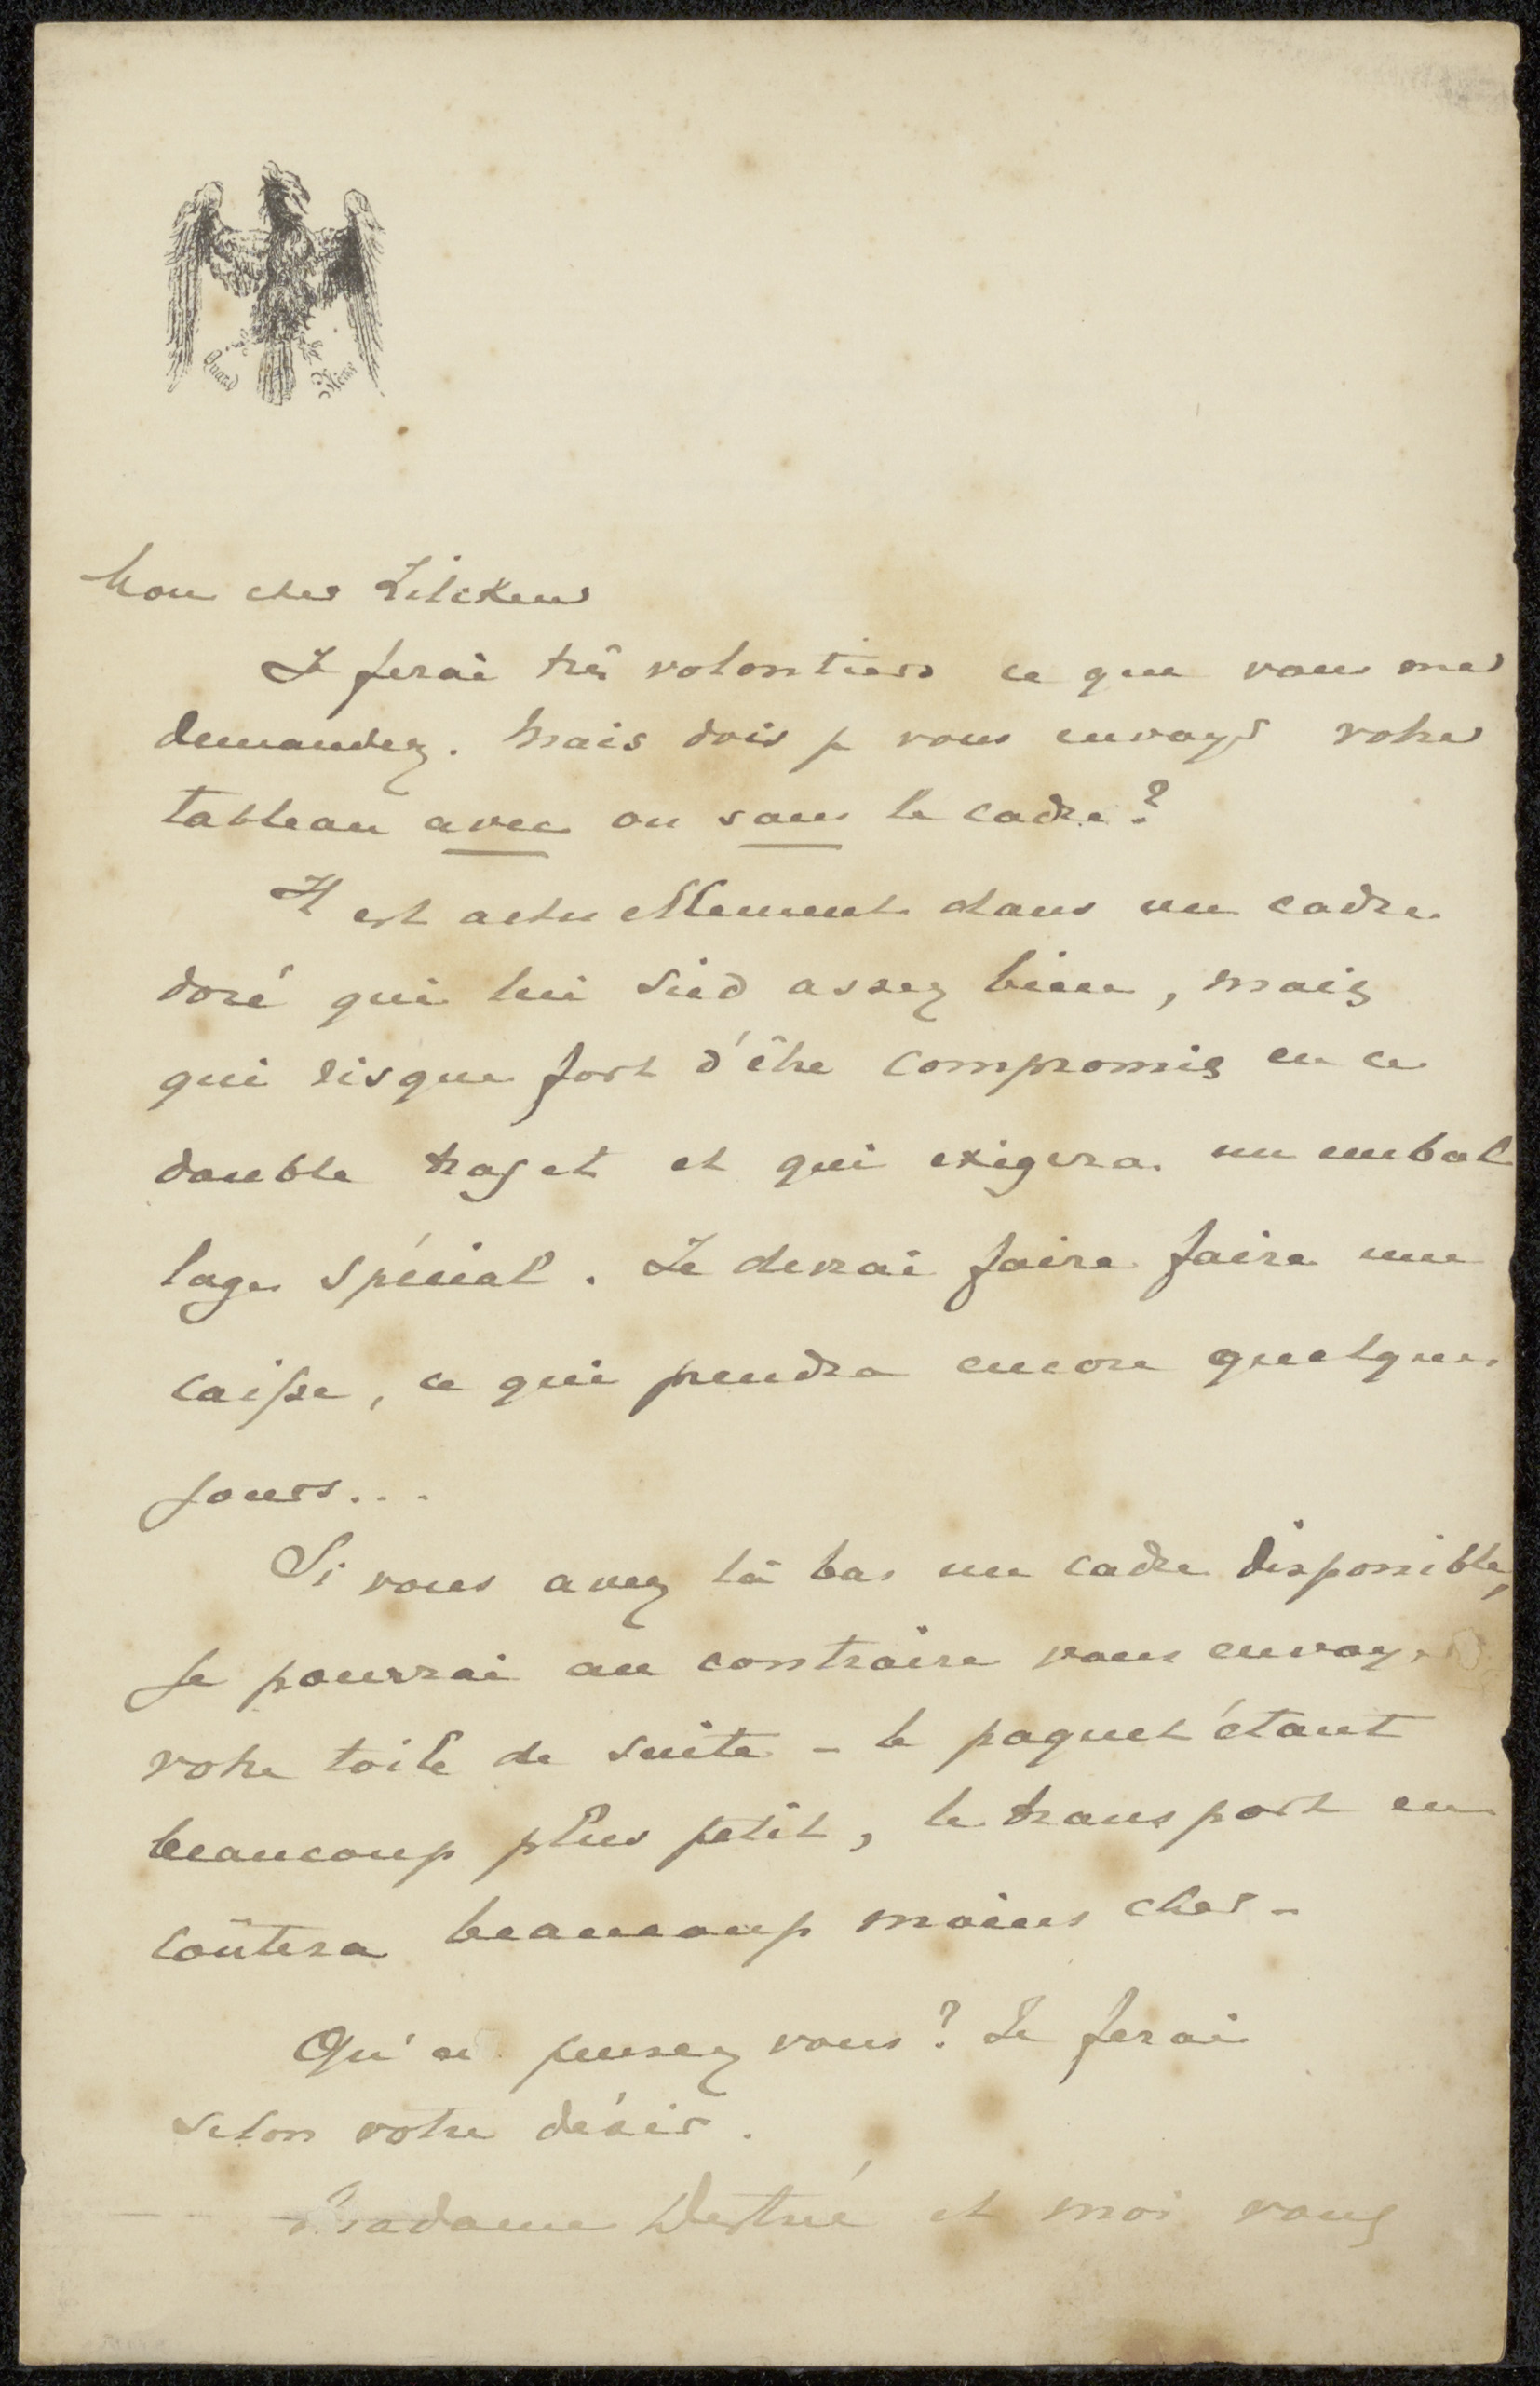 Quand Même
Mon cher Zilcken
Je ferai très volontiers ce que vous me
demandez. Mais dois je vous envoyer votre
tableau avec ou sans le cadre?
Il est actuellement dans un cadre
doré qui lui sied assez bien, mais
qui risque fort d'être compromis en ce
double trajet et qui exigera un embal
lage spécial. Je devrai faire faire une
caisse, ce qui prendra encore quelques
jours...
Si vous avez là bas un cadre disponible,
je pourrai au contraire vous envoyer
votre toile de suite - le paquet étant
beaucoup plus petit, le transport en
coûtera beaucoup moins cher -
Qu'en pensez vous? Je ferai
selon votre désir.
Madame Destrée et moi vous